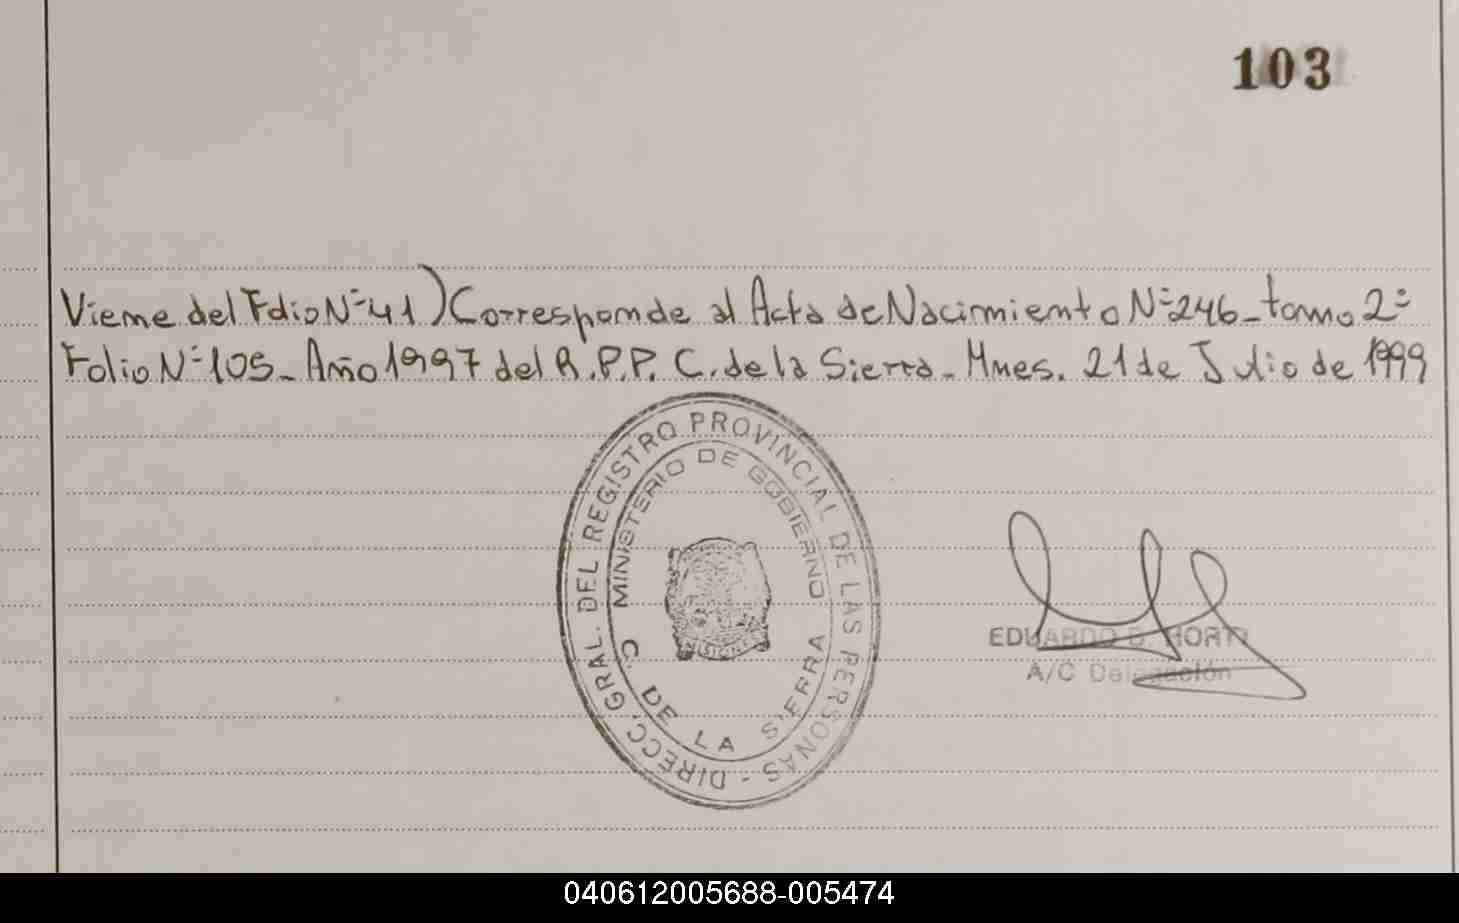 103
Viene del Folio Nº 41) Corresponde al Acta de Nacimiento Nº 246_ tomo 2º
Folio Nº 105_ Año 1997 del R.P.P. C. de la Sierra_ Mnes. 21 de Julio de 1999
DIRECC. GRAL. DEL REGISTRO PROVINCIAL DE LAS PERSONAS -
MINISTERIO DE GOBIERNO
C. DE LA SIERRA
MISIONES
EDUARDO
A/C Delegación
040612005688-005474